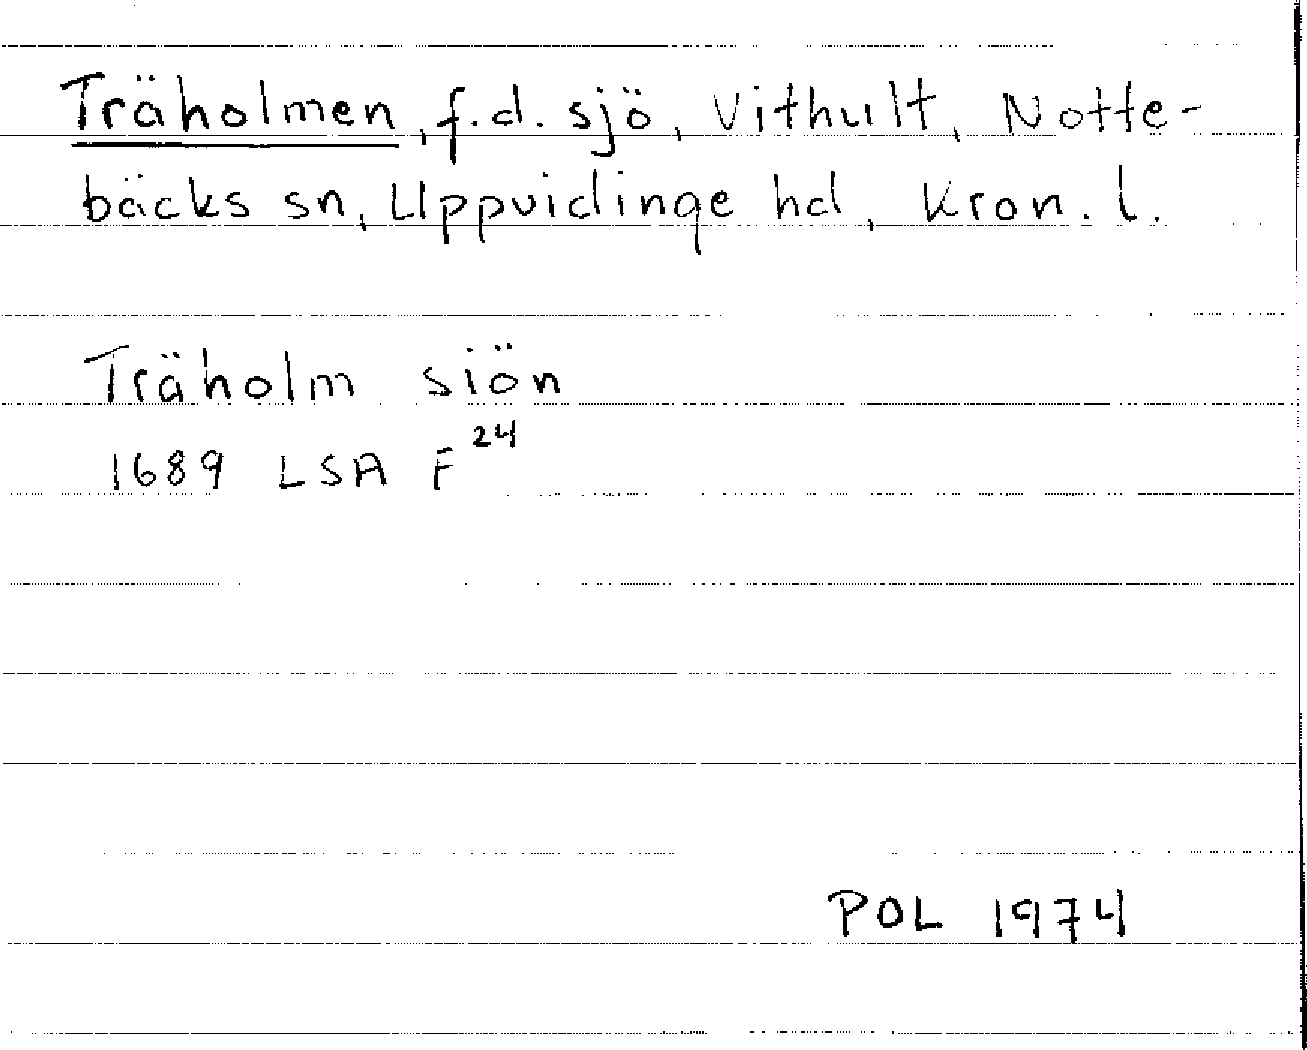 Träholmen, f.d. sjö, Vithult, Notte-
bäcks sn, Uppvidinge hd, Kron. l.
Träholm siön
1689 LSA F24
POL 1974